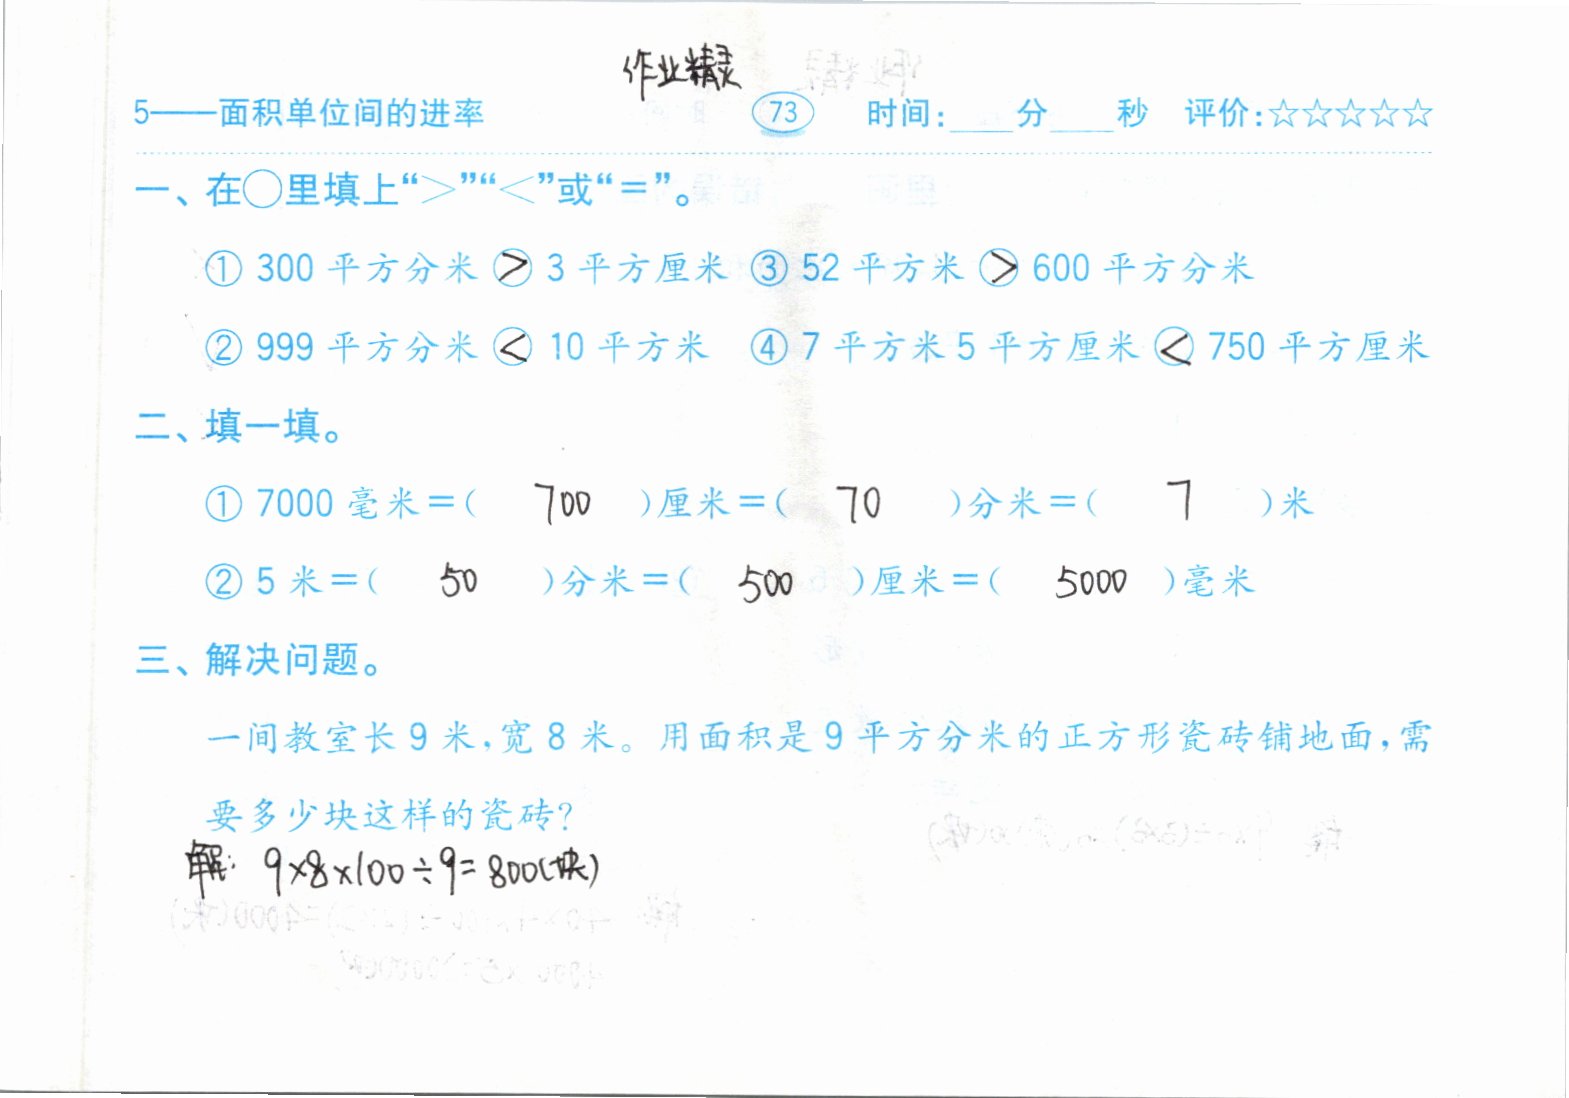 作业精灵
5——面积单位间的进率 73 时间:____分____秒 评价:☆☆☆☆☆
一、在○里填上“>”“<”或“=”。
① 300 平方分米 > 3 平方厘米 ③ 52 平方米 > 600 平方分米
② 999 平方分米 < 10 平方米 ④ 7 平方米 5 平方厘米 < 750 平方厘米
二、填一填。
① 7000 毫米=( 700 )厘米=( 70 )分米=( 7 )米
② 5 米=( 50 )分米=( 500 )厘米=( 5000 )毫米
三、解决问题。
一间教室长 9 米,宽 8 米。用面积是 9 平方分米的正方形瓷砖铺地面,需
要多少块这样的瓷砖?
解: 9×8×100÷9=800(块)